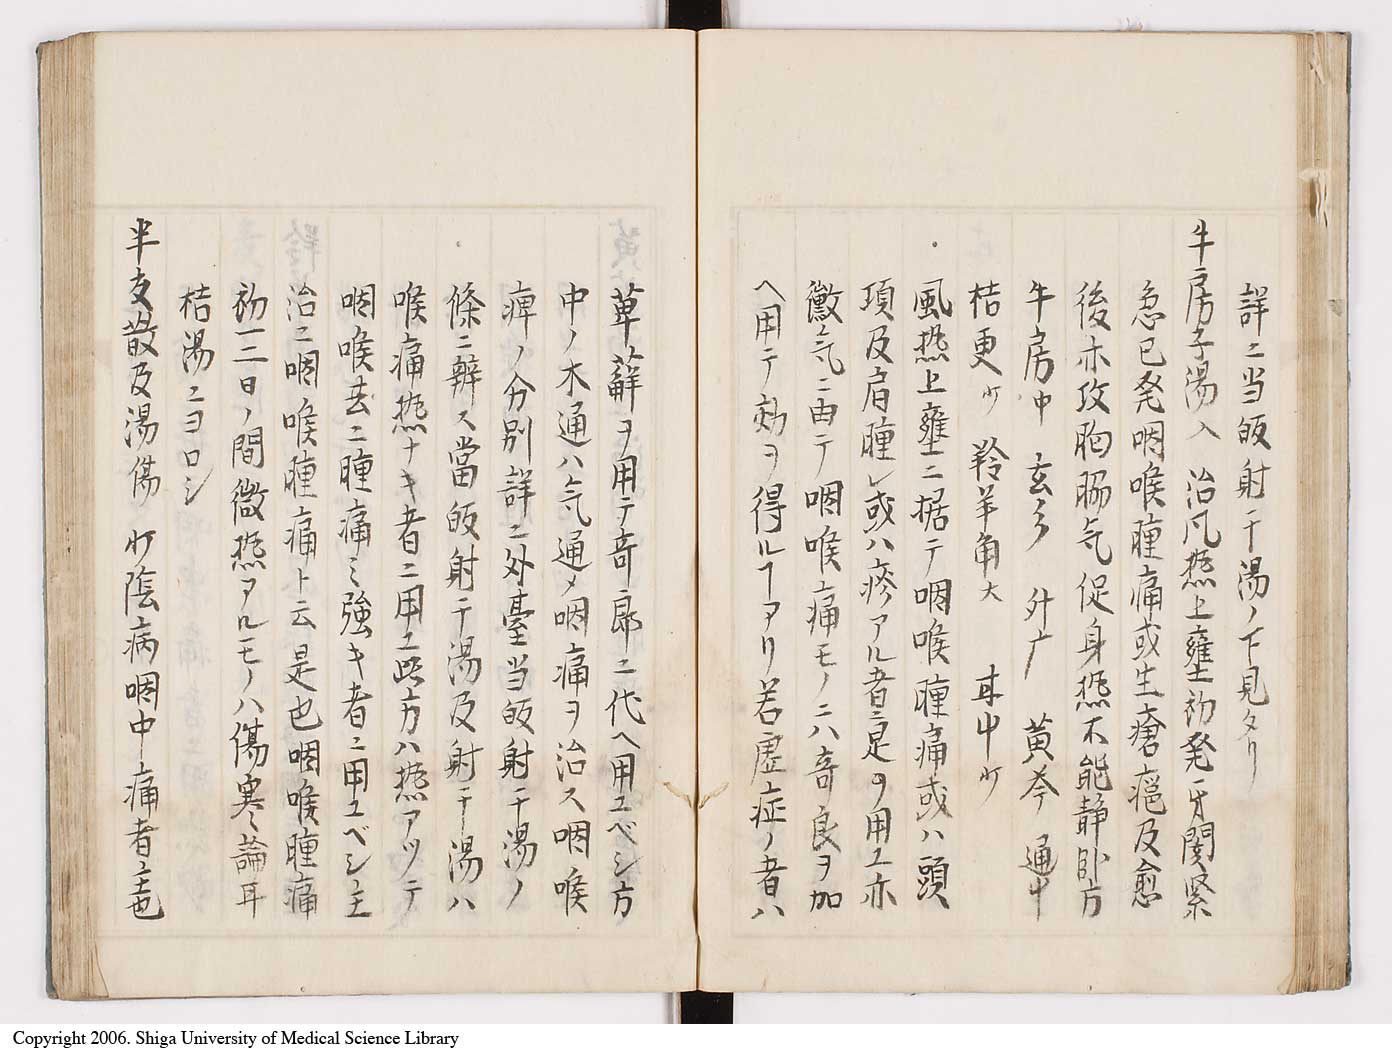 詳ニ当皈射干湯ノ下見タリ
牛房子湯入 治凡𤍠上壅初発牙関緊
急已発咽喉腫痛或生瘡疱及愈
後亦攻胸脇气促身𤍠不能静卧方
牛房中 玄多 升广 黄芩 通中
桔更少 羚羊角大 甘中少
風𤍠上壅ニ据テ咽喉腫痛或ハ頭
項及肩腫レ或ハ疼アル者ニ是ヲ用ユ亦
黴气ニ由テ咽喉痛モノニハ奇良ヲ加
ヘ用テ効ヲ得ルヿアリ若虚症ノ者ハ
萆薢ヲ用テ奇良ニ代ヘ用ユベシ方
中ノ木通ハ气通メ咽痛ヲ治ス咽喉
痺ノ分別詳ニ外臺当皈射干湯ノ
條ニ辨ス當皈射干湯及射干湯ハ
喉痛𤍠ナキ者ニ用ユ此方ハ𤍠アツテ
咽喉甚ニ腫痛ミ強キ者ニ用ユベシ主
治ニ咽喉腫痛ト云是也咽喉腫痛
初一二日ノ間微𤍠アルモノハ傷寒論耳
桔湯ニヨロシ
半夏散及湯傷 少陰病咽中痛者主